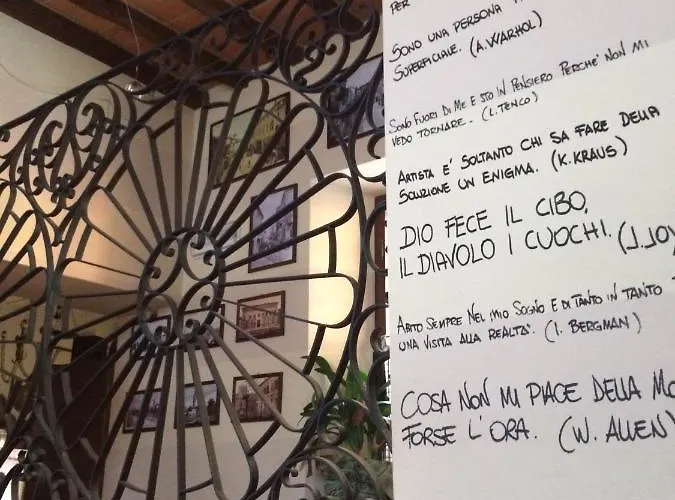 PER
SONO UNA PERSONA
SUPERFICIALE. (A. WARHOL)
SONO FUORI DI ME E STO IN PENSIERO PERCHE' NON MI
VEDO TORNARE. (L. TENCO)
ARTISTA E' SOLTANTO CHI SA FARE DELLA
SOLUZIONE UN ENIGMA. (K. KRAUS)
DIO FECE IL CIBO,
IL DIAVOLO I CUOCHI. (J. JOY
ABITO SEMPRE NEL MIO SOGNO E DI TANTO IN TANTO
UNA VISITA ALLA REALTA'. (I. BERGMAN)
COSA NON MI PIACE DELLA MO
FORSE L'ORA. (W. ALLEN)